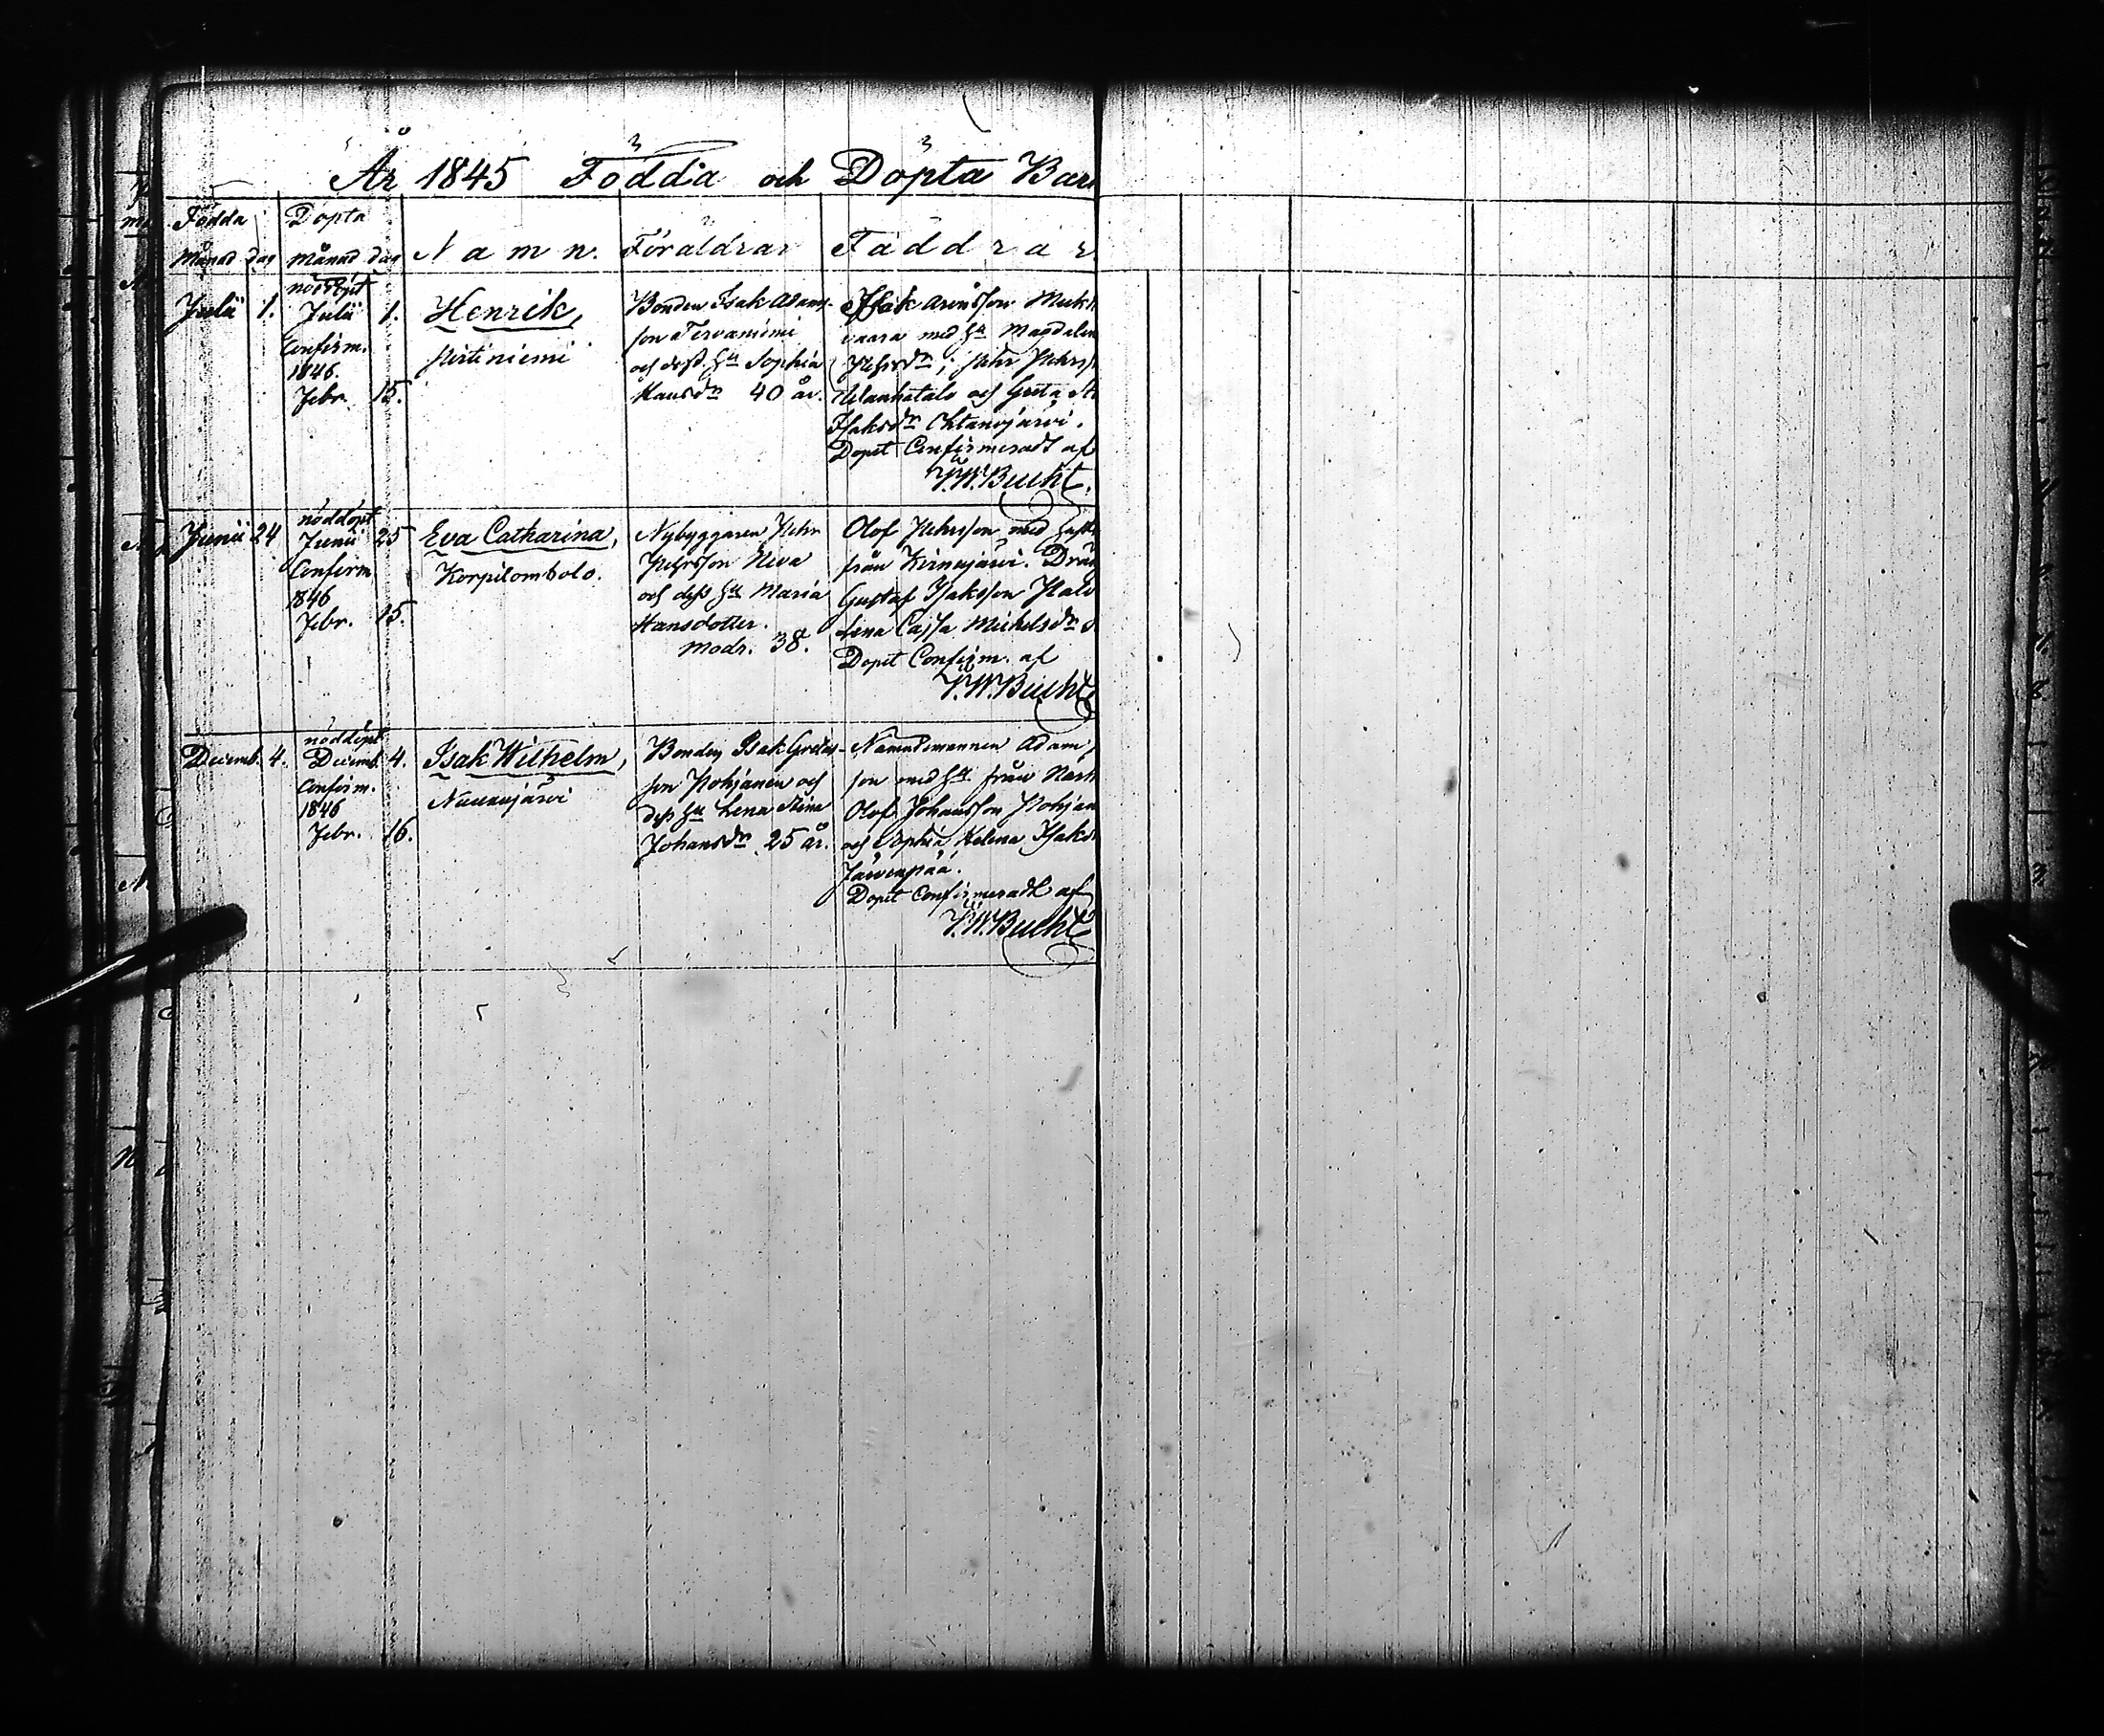 År 1845 Födda och Döpta Barn
Födda Döpta
Månad dag Månad dag Namn. Föräldrar Faddrar
Julii 1.
nöddöpt
Julii 1.
Confirm.
1846.
Febr. 15.
Henrik,
Pirtiniemi
Bonden Isak Adams-
son Tervaniemi
och dess hu Sophia
Hansdr 40 år.
Isak Aronsson
vaara med hu Magdalen
Pehrsdr; Pehr Pehrss
och Greta
Isaksdr Ohtanajärvi.
Dopet Confirmeradt af
P.W.Bucht.
Junii 24
nöddöpt
Junii 25
Confirm
1846
Febr. 15.
Eva Catharina,
Korpilombolo.
Nybyggaren Pehr
Pehrsson Niva
och dess hu Maria
Hansdotter.
modr. 38.
Olof Pehrsson med hust
från Kirnujärvi. Drän
Gustaf Isaksson Palo
Lena Cajsa Michelsdr
Dopet Confirm. af
P.W.Bucht
Decemb. 4.
nöddöpt
Decemb. 4.
Confirm.
1846
Febr. 16.
Isak Wilhelm,
Nuuanjärvi
Bonden Isak Gretas-
son Pohjanen och
dess hu Lena Stina
Johansdr 25 år.
Nämndemannen Adam
son med hu från
Olof Johansson Pohjan
och Sophia Helena Isaksd
Järvenpää.
Dopet Confirmeradt af
P.W.Bucht